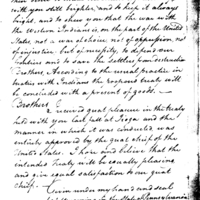 with you still brighter, and to keep it always
bright, and to shew you that the war with
the western Indians is, on the part of the United
States not a war of choice nor of oppression, nor
of injustice but of necessity, to defend our
frontiers and to save the settlers from destruction
Brothers, According to the usual practice in
treaties with Indians the proposed treaty will
be concluded with a present of goods.
Brothers!
I received great pleasure in the treaty
held with you last fall at Tioga and the
manner in which it was conducted, was
entirely approved by the great chief of the
United States. I hope and believe that the
intended Treaty will be equally pleasing
and give equal satisfaction to our great
chief.
Given under my hand and seal
in the State of Pennsylvania